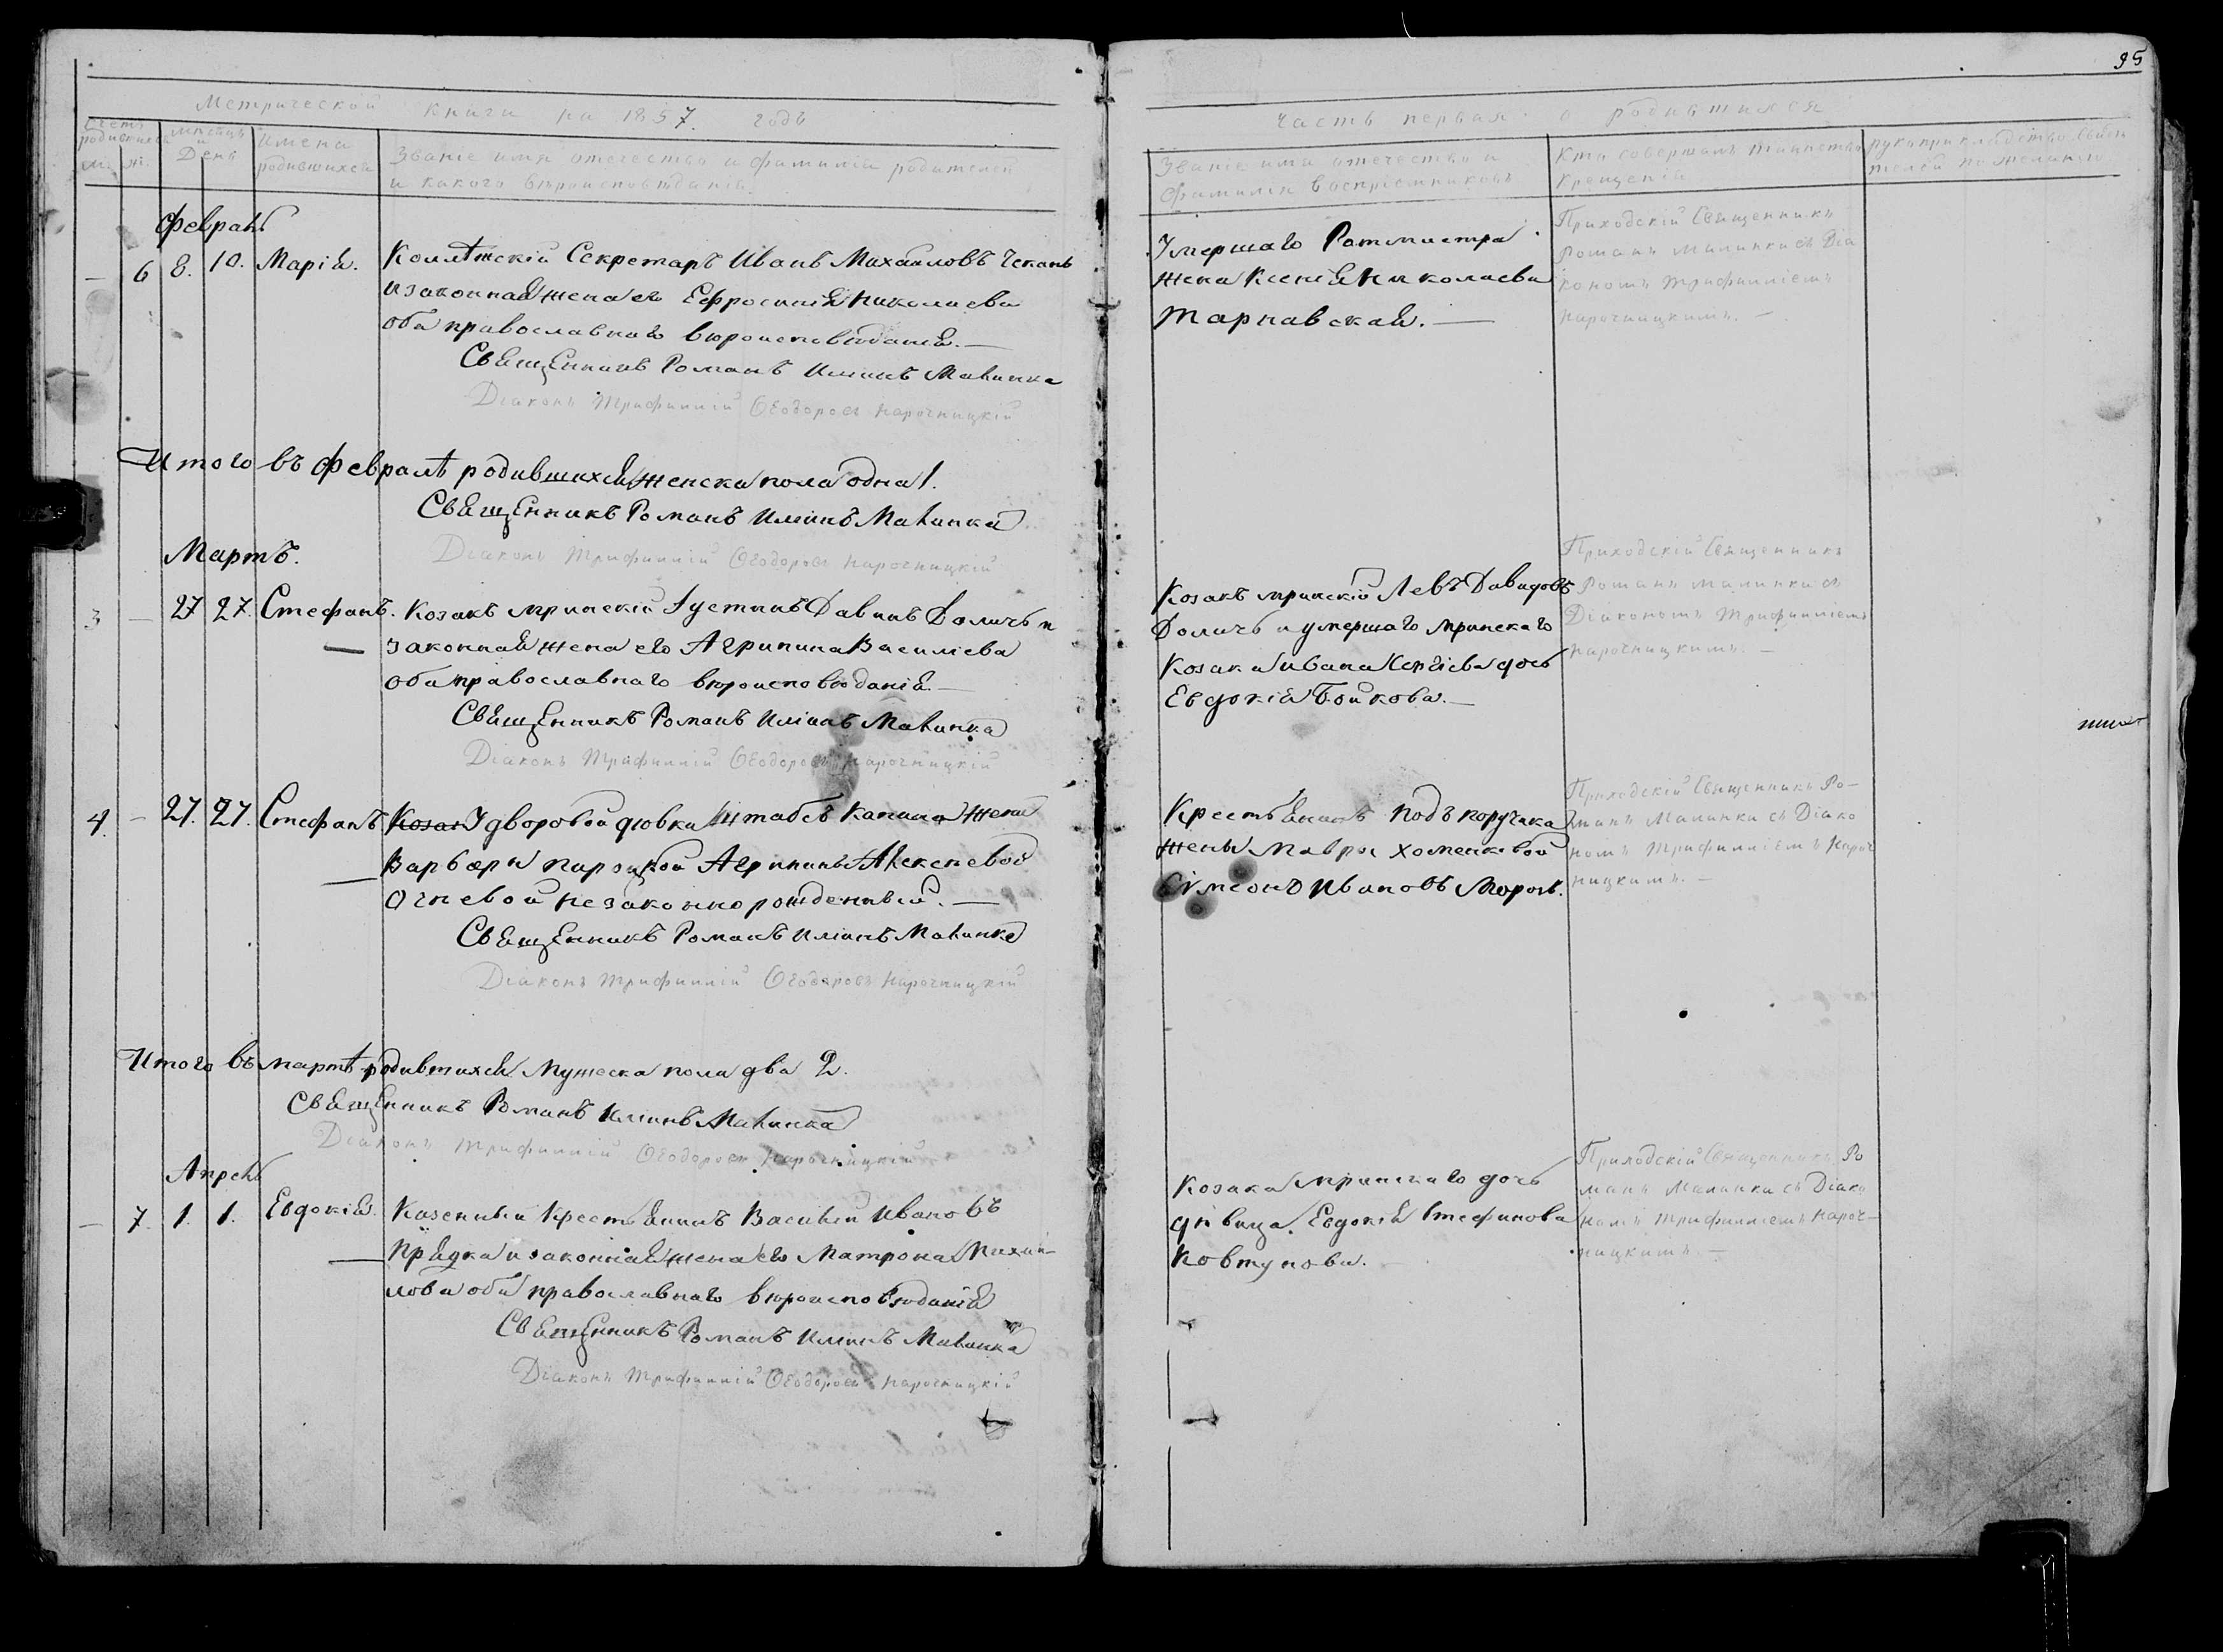 95
Метрической книги на 1857. годъ
Часть первая о родившихся
Счетъ родившихся
м. ж.
мѣсяцъ и День
Имена родившихся
Званіе имя отечество и фамилія родителей
и какого вѣроисповѣданія.
Званіе имя отечество и
фамилія воспріемниковъ
Кто совершалъ таинство
крещенія
рукоприкладство свидѣ
телей по желанію
Февраль
— 6 8. 10. Марія. Коллѣжскій Секретарь Иванъ Михаиловъ Чеканъ
и законная жена его Ефросинія Николаева
оба православнаго вѣроисповѣданія.—
Священникъ Романъ Иліинъ Малинка
Діаконъ Трифиллій Ѳеодоровъ Нарочницкій
Умершаго Ротмистра
жена Ксенія Николаева
Тарнавская.—
Приходскій Священникъ
Романъ Малинка съ Діа
кономъ Трифилліемъ
Нарочницкимъ. —
Итого въ Февралѣ родившихся женска пола одна 1.
Священникъ Романъ Иліинъ Малинка
Діаконъ Трифиллій Ѳеодоровъ Нарочницкій
Мартъ.
3 — 27 27. Стефанъ. Козакъ мринскій Іустинъ Давинъ Доличъ и
законная жена его Агрипина Василіева
оба православнаго вѣроисповѣданія.—
Священникъ Романъ Иліинъ Малинка
Діаконъ Трифиллій Ѳеодоровъ Нарочницкій
Козакъ мринскій Левъ Давидовъ
Доличъ и умершаго мринскаго
Козака Ивана Сергіева дочь
Евдокія Бойкова.—
Приходскій Священникъ
Романъ Малинка съ
Діакономъ Трифилліемъ
Нарочницкимъ. —
4. — 27. 27. Стефанъ. Козак У дворовой дѣвки Штабсъ Капитана жены
Варвары Пироцкой Агрипины Алексѣевой
Огневой незаконнорожденный.—
Священникъ Романъ Иліинъ Малинка
Діаконъ Трифиллій Ѳеодоровъ Нарочницкій
Крестьянинъ Подъпоручика
жены Мавры Хоменковой
Сѵмеонъ Ивановъ Морозъ.
Приходскій Священникъ Ро-
манъ Малинка съ Діако
номъ Трифилліемъ Нароч
ницкимъ. —
Итого въ мартѣ родившихся Мужеска пола два 2.
Священникъ Романъ Иліинъ Малинка
Діаконъ Трифиллій Ѳеодоровъ Нарочницкій
Апрель
— 7. 1. 1. Евдокія. Казенный Крестьянинъ Василій Ивановъ
Прядка и законная жена его Матрона Михай-
лова оба православнаго вѣроисповѣданія
Священникъ Романъ Иліинъ Малинка
Діаконъ Трифиллій Ѳеодоровъ Нарочницкій
Козака мринскаго дочь
дѣвица Евдокія Стефанова
Ковтунова.
Приходскій Священникъ Ро
манъ Малинка съ Діако
номъ Трифилліемъ Нароч—
ницкимъ —